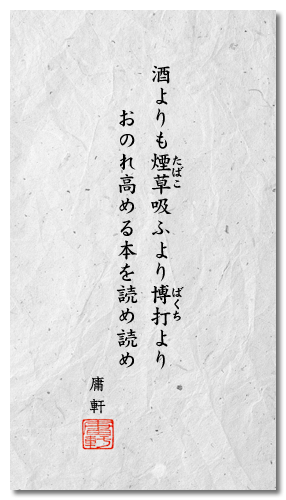 酒よりも煙草吸ふより博打より
たばこ
ばくち
おのれ高める本を読め読め
庸軒
庸軒